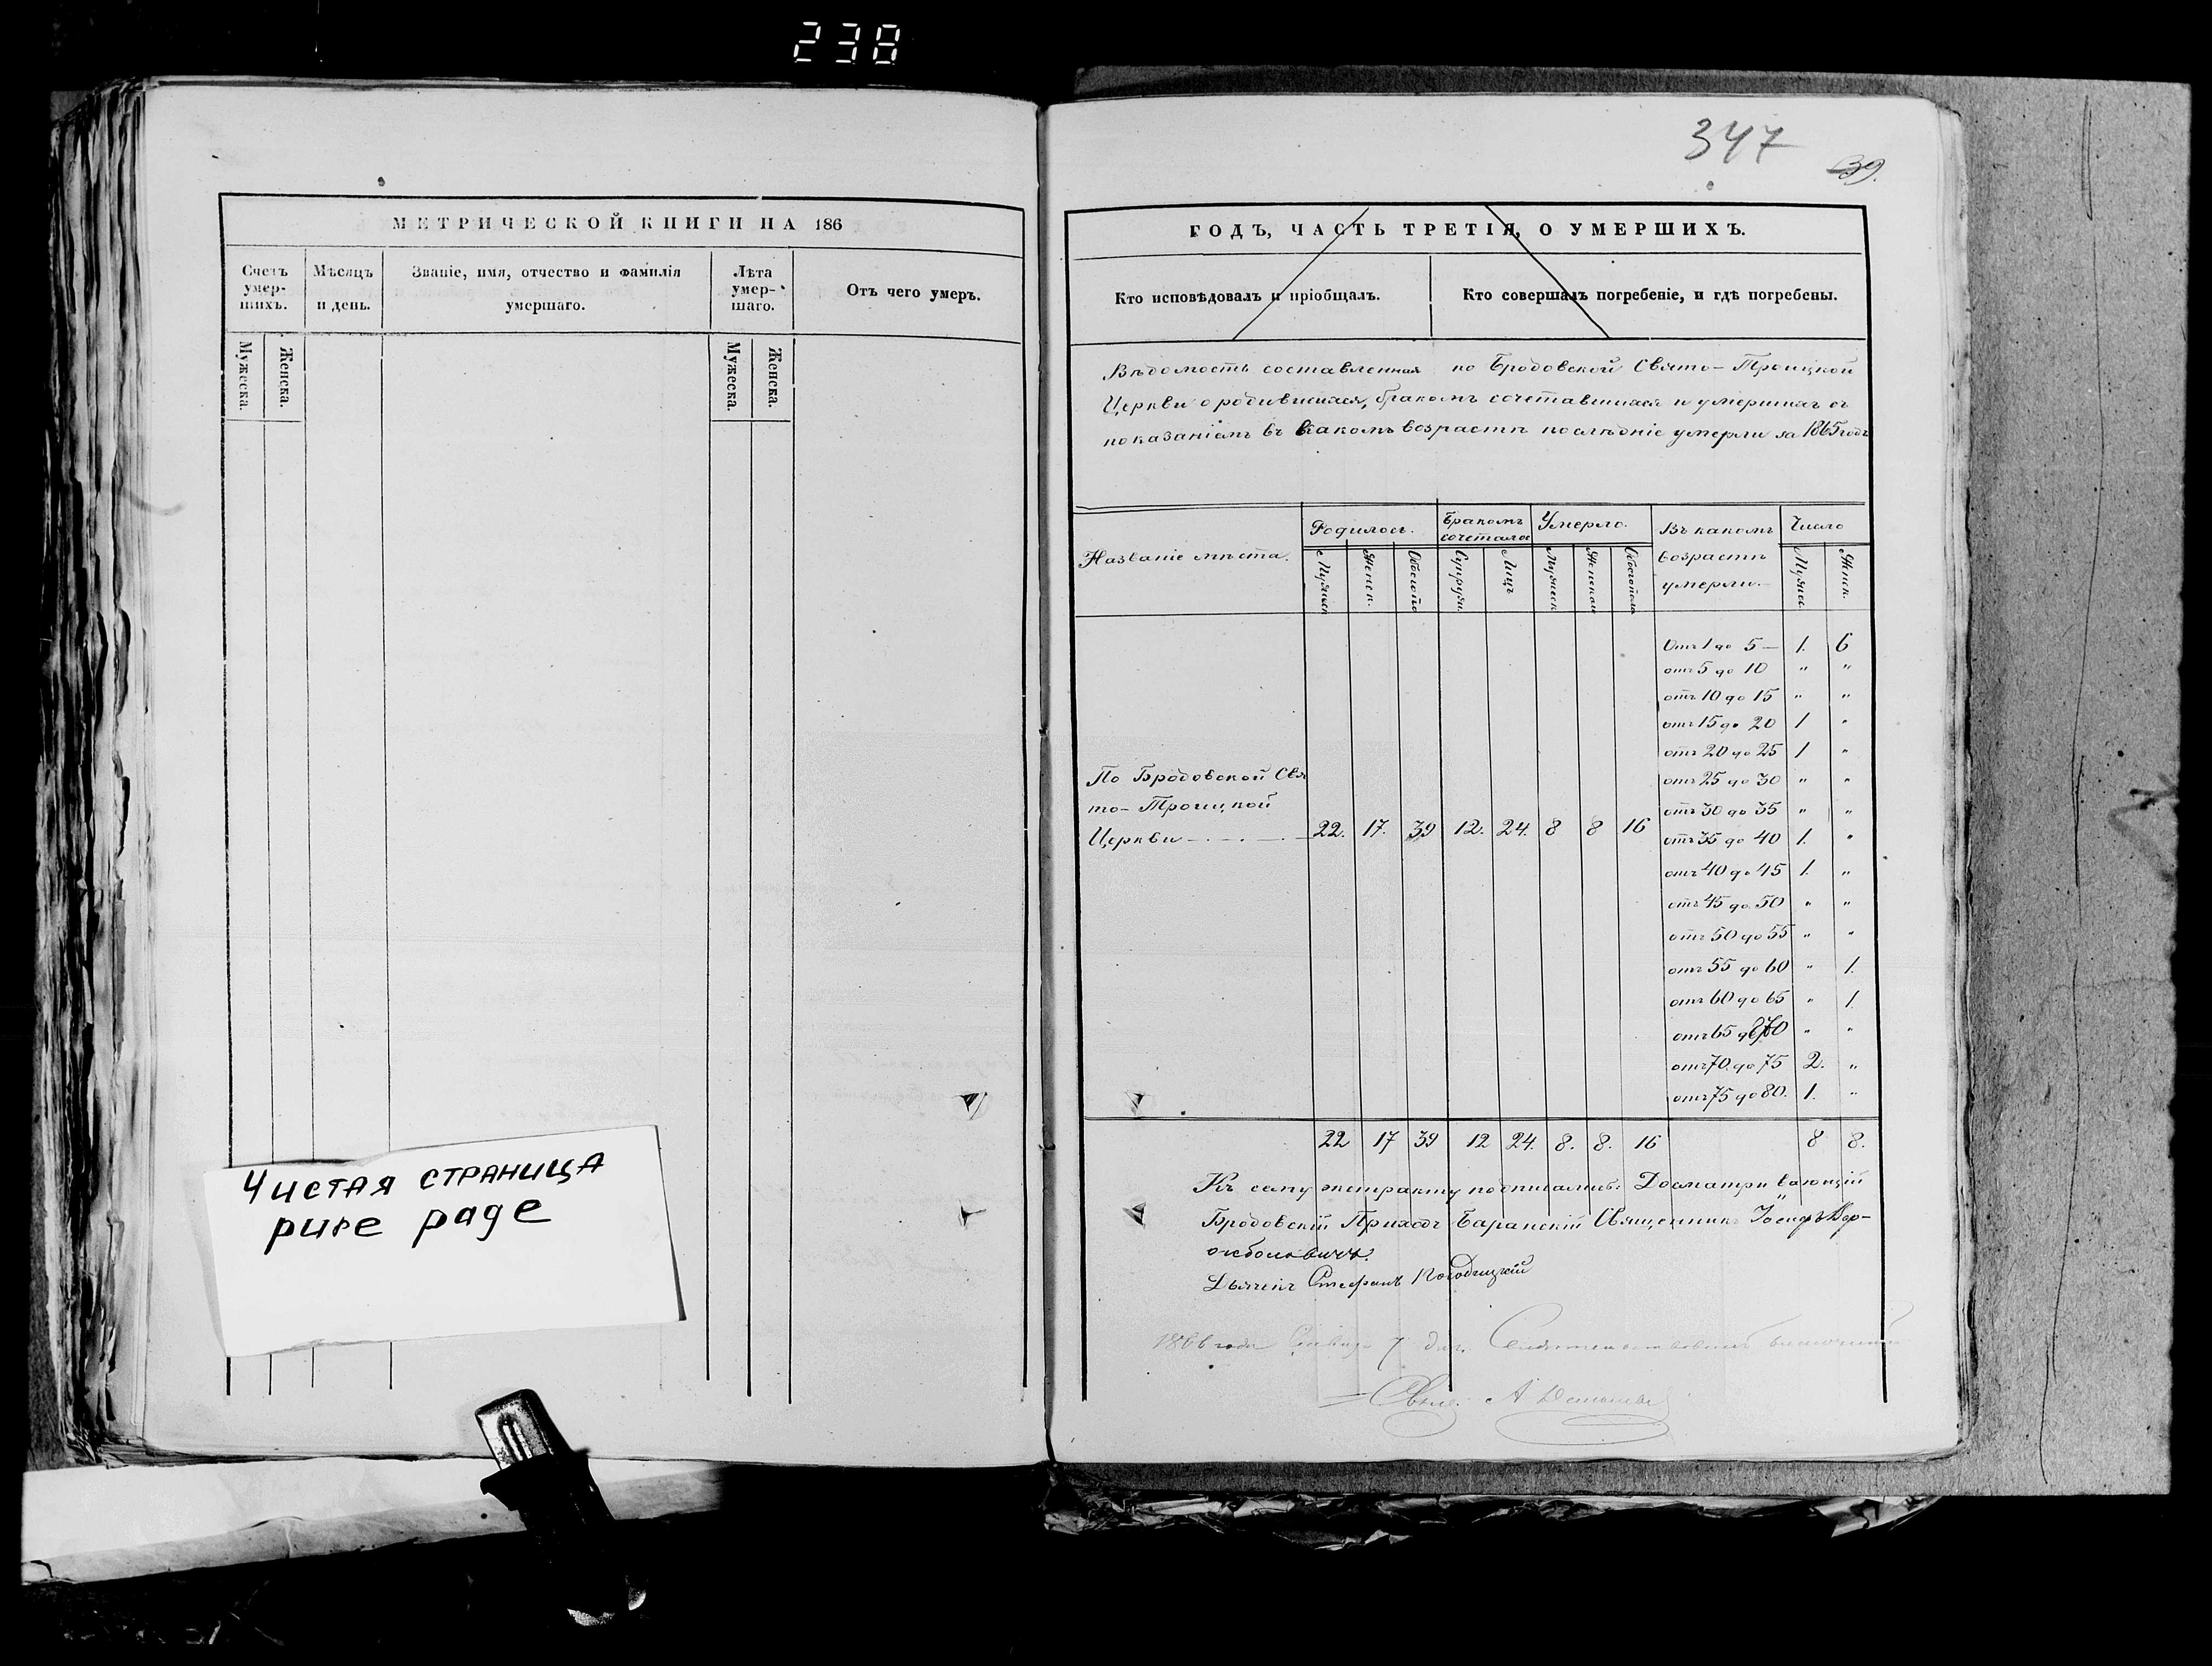 238
МЕТРИЧЕСКОЙ КНИГИ НА 186
Счетъ умер-шихъ.
Мѣсяцъ и день.
Званіе, имя, отчество и фамилія умершаго.
Лѣта умер-шаго.
Отъ чего умеръ.
Мужеска.
Женска.
Мужеска.
Женска.
Чистая страница
pure page
347
39.
ГОДЪ, ЧАСТЬ ТРЕТІЯ, О УМЕРШИХЪ.
Кто исповѣдовалъ и пріобщалъ.
Кто совершалъ погребеніе, и гдѣ погребены.
Вѣдомость составленная по Бродовской Свято-Троицкой
Церкви о родившихся, бракомъ сочетавшихся и умершихъ съ
показаніемъ въ какомъ возрастѣ послѣдніе умерли за 1865 годъ
Названіе мѣста.
Родилось.
Бракомъ сочеталось
Умерло.
Въ какомъ возрастѣ умерли.
Число
Мужеск
Женск.
Обоего по
Супруж.
Лицъ
Мужеск
Женской
Обоего пола
Мужес.
Женск.
Отъ 1 до 5 — 1. 6
отъ 5 до 10 " "
отъ 10 до 15 " "
отъ 15 до 20 1 "
отъ 20 до 25 1 "
По Бродовской Свя
отъ 25 до 30 " "
то-Троицкой
отъ 30 до 35 " "
Церкви 22. 17. 39 12. 24. 8 8 16
отъ 35 до 40 1. "
отъ 40 до 45 1. "
отъ 45 до 50 " "
отъ 50 до 55 " "
отъ 55 до 60 " 1.
отъ 60 до 65 " 1.
отъ 65 до 70 " "
отъ 70 до 75 2. "
отъ 75 до 80. 1. "
22 17 39 12 24. 8. 8. 16 8 8.
Къ сему экстракту подписались: Досматривающій
Бродовскій Приходъ Баранскій Священникъ Іосифъ Вер-
жболовичъ.
Дьячекъ Стефанъ
1866 года 7 дня. Свидѣтельствовалъ
Свящ. А